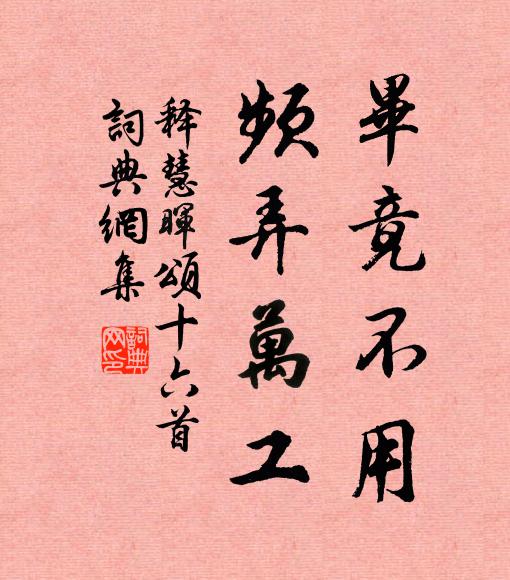 畢竟不用
頻弄萬工
释慧暉頌十六首
詞典網集
詞典網印